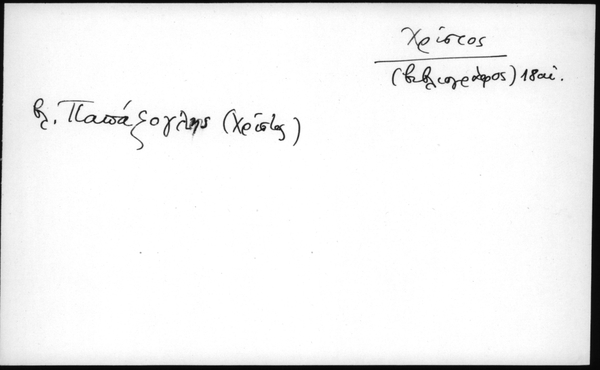 Χρίστος
(βιβλιογράφος) 18 αἰ.
βλ. Παπάζογλης (Χρίστος)